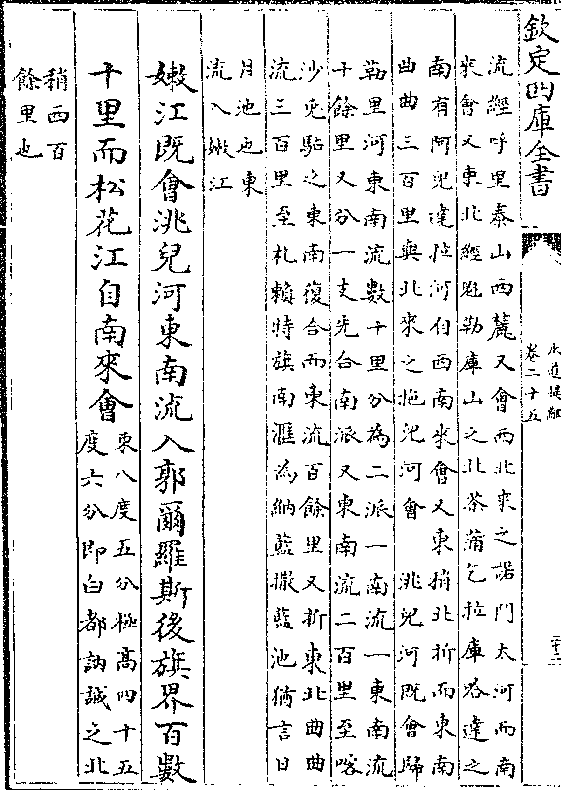 欽定四庫全書
水道提綱
卷二十五
流經呼里泰山西麓又會西北來之諾門太河而南
來會又東北經魁勒庫山之北茶蒲乞拉庫峪達之
南有阿兒達拉河自西南來會又東稍北折而東南
曲曲三百里與北來之拖兒河會 洮兒河既會歸
勒里河東南流數十里分為二派一南流一東南流
十餘里又分一支先合南派又東南流二百里至喀
沙兔站之東南復合而東流百餘里又折東北曲曲
流三百里至札賴特旗南滙為納藍撒藍池猶言日
月池也東
流入嫩江
嫩江既會洮兒河東南流入郭爾羅斯後旗界百數
十里而松花江自南來會
東八度五分極高四十五
度六分即白都訥誠之北
稍西百
餘里也